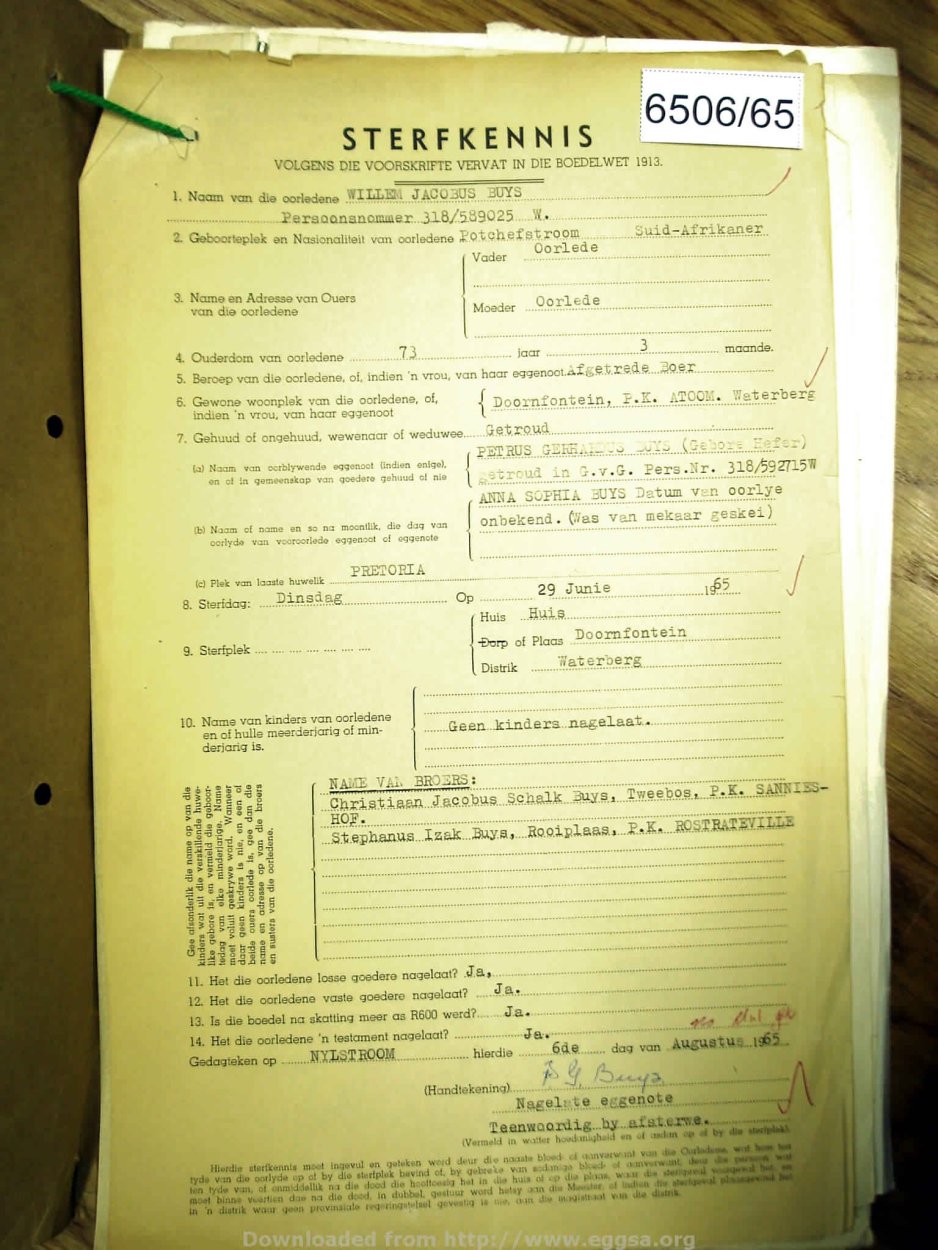 6506/65
STERFKENNIS
VOLGENS DIE VOORSKRIFTE VERVAT IN DIE BOEDELWET 1913.
1. Naam van die oorledene WILLEM JACOBUS BUYS
Persoonsnommer 318/589025 W.
2. Geboorteplek en Nasionaliteit van oorledene Potchefstroom Suid-Afrikaner
3. Name en Adresse van Ouers van die oorledene
Vader Oorlede
Moeder Oorlede
4. Ouderdom van oorledene 73 jaar 3 maande.
5. Beroep van die oorledene, of, indien 'n vrou, van haar eggenoot Afgetrede Boer
6. Gewone woonplek van die oorledene, of, Doornfontein, P.K. ATOOM. Waterberg
indien 'n vrou, van haar eggenoot
7. Gehuud of ongehuud, wewenaar of weduwee Getroud
(a) Naam van oorblywende eggenoot (indien enige), PETRUS GERHARDUS BUYS (Gebore Hefer)
en of in gemeenskap van goedere gehuud of nie getroud in G.v.G. Pers.Nr. 318/592715W
ANNA SOPHIA BUYS Datum van oorlye
(b) Naam of name en so na moontlik, die dag van onbekend. (Was van mekaar geskei)
oorlyde van vooroorlede eggenoot of eggenote
(c) Plek van laaste huwelik PRETORIA
8. Sterfdag: Dinsdag Op 29 Junie 1965
9. Sterfplek
Huis Huis
Dorp of Plaas Doornfontein
Distrik Waterberg
10. Name van kinders van oorledene
en of hulle meerderjarig of min-
derjarig is.
Geen kinders nagelaat.
Gee afsonderlik die name op van die
kinders wat uit die verskillende huwe-
like gebore is, en vermeld die geboor-
tedag van elke minderjarige. Name
moet voluit geskrywe word. Wanneer
daar geen kinders is nie, en een of
beide ouers oorlede is, gee dan die
name en adresse op van die broers
en susters van die oorledene.
NAME VAN BROERS:
Christiaan Jacobus Schalk Buys, Tweebos, P.K. SANNIES-
HOF.
Stephanus Izak Buys, Rooiplaas, P.K. ROSTRATEVILLE
11. Het die oorledene losse goedere nagelaat? Ja,
12. Het die oorledene vaste goedere nagelaat? Ja.
13. Is die boedel na skatting meer as R600 werd? Ja.
14. Het die oorledene 'n testament nagelaat? Ja.
Gedagteken op NYLSTROOM hierdie 6de dag van Augustus 1965
(Handtekening) Buys
Nagelate eggenote
Teenwoordig by afsterwe.
(Vermeld in watter hoedanigheid en of aldan op of by die sterfplek).
Hierdie sterfkennis moet ingevul en geteken word deur die naaste bloed- of aanverwant van die Oorledene, wat hom ten
tyde van die oorlyde op of by die sterfplek bevind of, by gebreke van sodanige bloed- of aanverwant, deur die persoon wat
ten tyde van, of onmiddellik na die dood die hooftoesig het in die huis of op die plaas, waar die sterfgeval voorgeval het, en
moet binne veertien dae na die dood, in dubbel, gestuur word hetsy aan die Meester, of indien die sterfgeval plaasgevind het
in 'n distrik waar geen provinsiale regeringstelsel gevestig is nie, aan die magistraat van die distrik.
Downloaded from http://www.eggsa.org